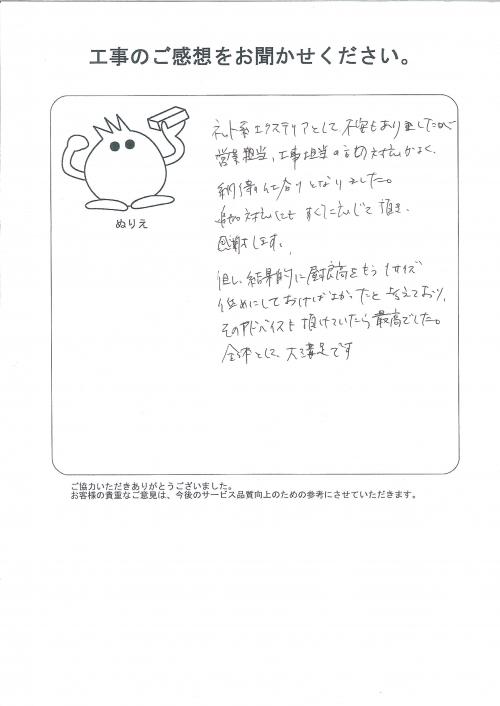 工事のご感想をお聞かせください。
ネット系エクステリアとして不安もありましたが
営業担当、工事担当の方の対応がよく、
納得の仕上りとなりました。
追加対応にもすぐに応じて頂き、
感謝します。
但し、結果的に高をもう1サイズ
低めにしておけばよかったと考えており、
そのアドバイスも頂けていたら最高でした。
全体として、大満足です
ぬりえ
ご協力いただきありがとうございました。
お客様の貴重なご意見は、今後のサービス品質向上のための参考にさせていただきます。